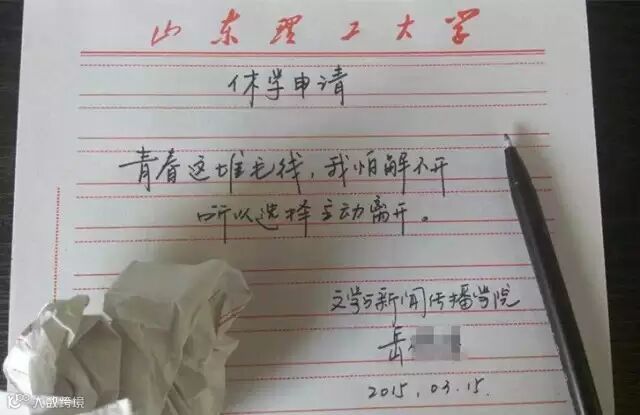 山东理工大学
休学申请
青春这堆毛线，我怕解不开
所以选择主动离开。
文学与新闻传播学院
岳
2015.03.15.
大数跨境